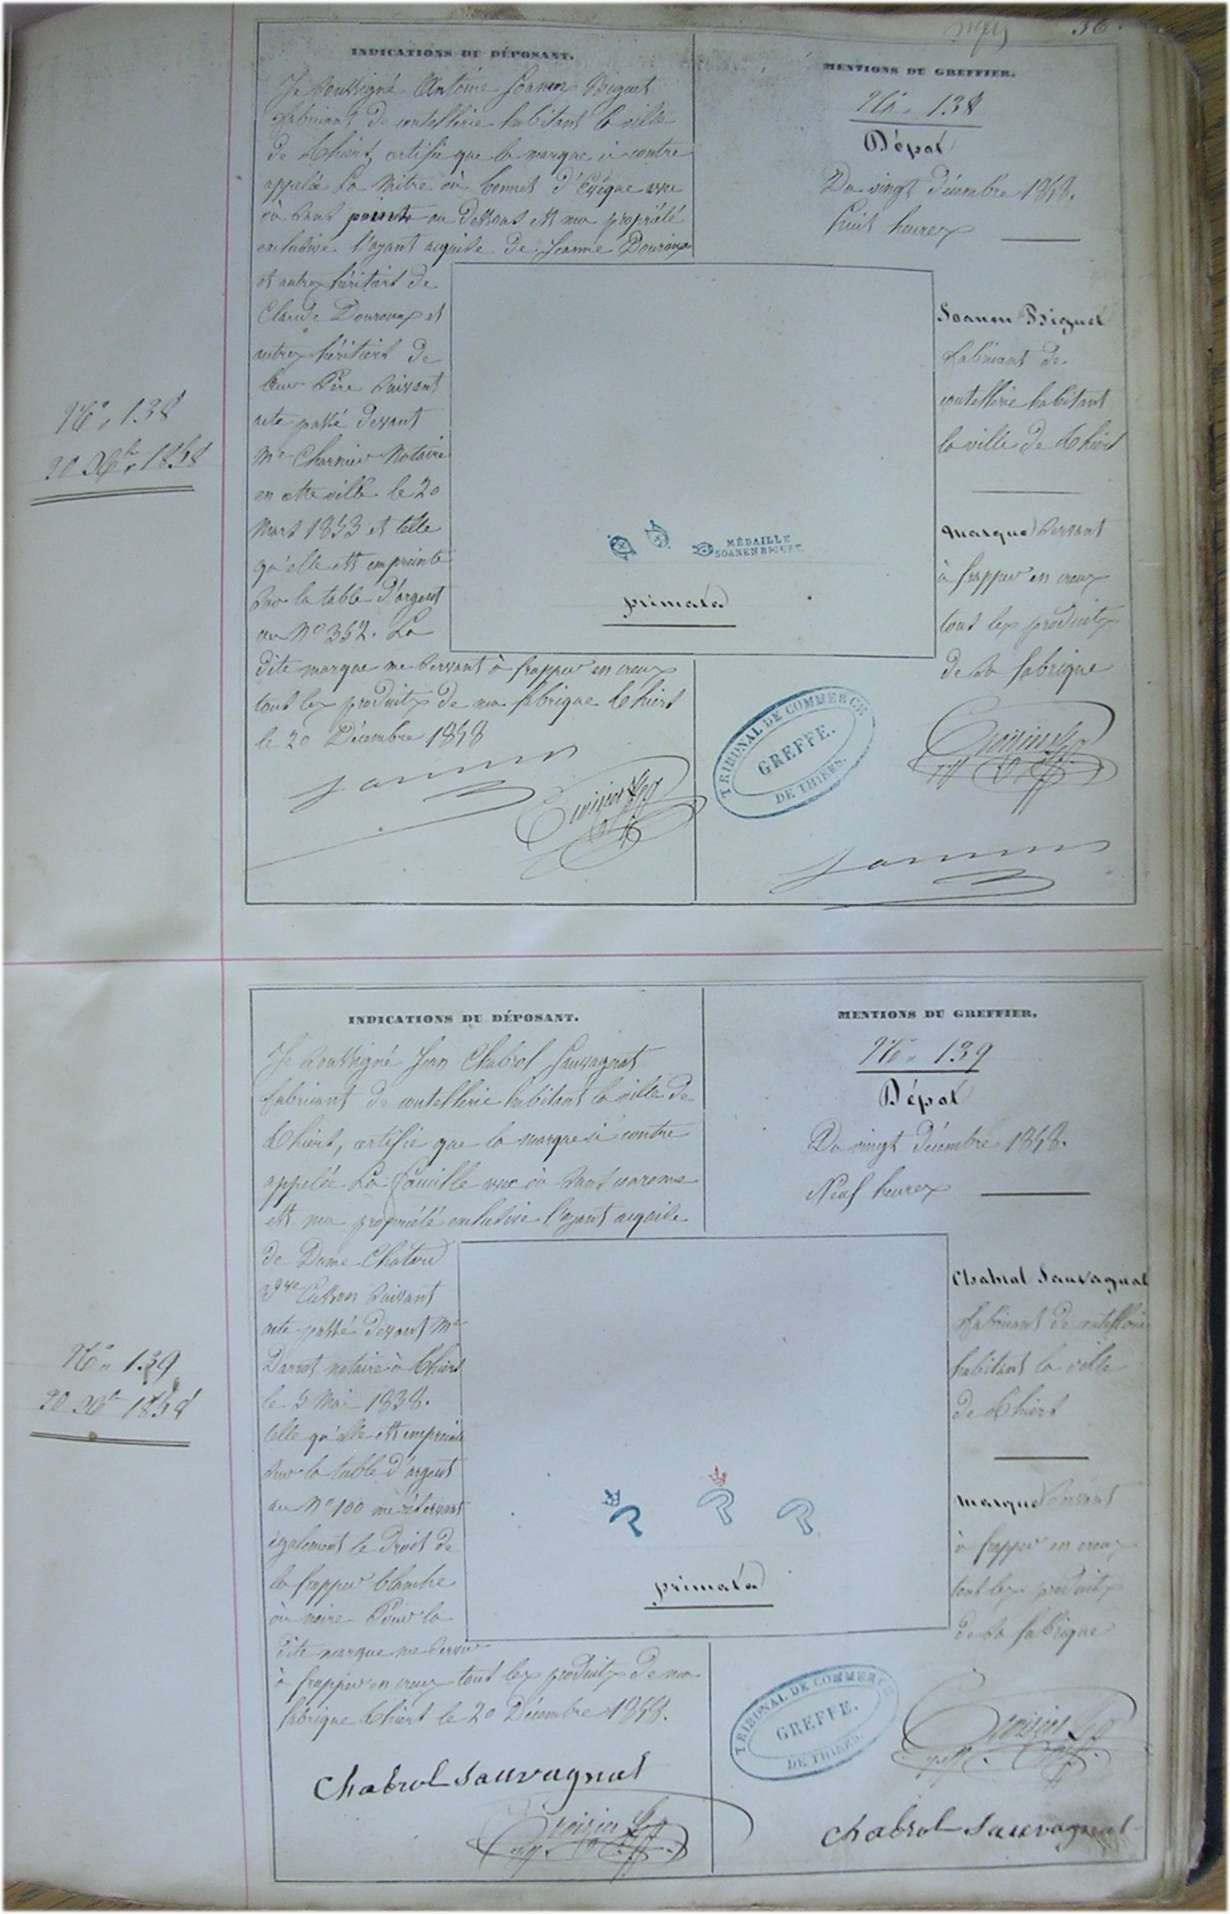 36.
INDICATIONS DU DÉPOSANT.
Je soussigné Antoine Soanen Biguet
fabricant de coutellerie habitant la ville
de Thiers, certifie que la marque ci contre
appelée La Mitre où bonnet d'Evêque avec
où sans points au dessous est ma propriété
exclusive l'ayant acquise de Jeanne Douroux
et autres héritiers de
Claude Douroux et
autres héritiers de
leur Père suivant
acte passé devant
Me Charnier Notaire
en cette ville le 20
Mars 1853 et telle
qu'elle est empreinte
sur la table d'argent
au No 352. La
dite marque me servant à frapper en creux
tous les produits de ma fabrique Thiers
le 20 Décembre 1858
MENTIONS DU GREFFIER.
No. 138
Dépot
Du vingt décembre 1858.
huit heures
Soanen Biguet
fabricant de
coutellerie habitant
la ville de Thiers
marque servant
à frapper en creux
tous les produits
de sa fabrique
MÉDAILLE
SOANEN BIGUET
primata
No. 138
20 Xbre 1858
TRIBUNAL DE COMMERCE
GREFFE.
DE THIERS.
Soanen
Soanen
INDICATIONS DU DÉPOSANT.
Je soussigné Jean Chabrol Sauvagnat
fabricant de coutellerie habitant la ville de
Thiers, certifie que la marque ci contre
appelée La avec où sans couronne
est ma propriété exclusive l'ayant acquise
de Dame Chatard
Vve suivant
acte passé devant Me
Darrot notaire à Thiers
le 5 Mai 1838.
telle qu'elle est empreinte
sur la table d'argent
au No 100 me réservant
également le droit de
la frapper blanche
où noire Pour la
dite marque me servir
à frapper en creux tous les produits de ma
fabrique Thiers le 20 Décembre 1858.
MENTIONS DU GREFFIER.
No. 139
Dépot
Du vingt décembre 1858.
Neuf heures
Chabrol Sauvagnat
fabricant de coutellerie
habitant la ville
de Thiers
marque servant
à frapper en creux
tous les produits
de sa fabrique
primata
No. 139
20 Xbre 1858
TRIBUNAL DE COMMERCE
GREFFE.
DE THIERS.
Chabrol Sauvagnat
Chabrol Sauvagnat